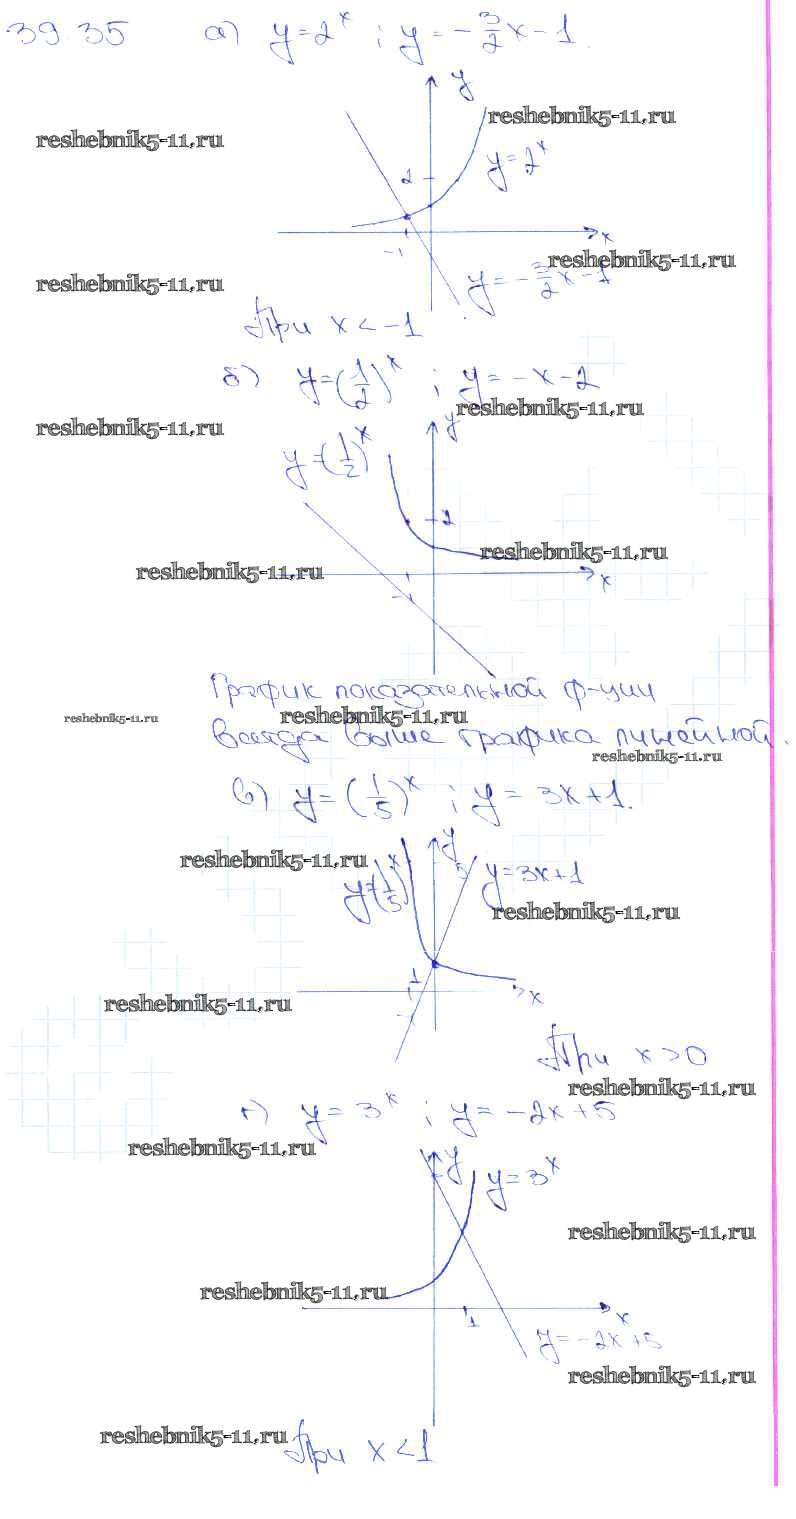 39.35 а) y=2^x ; y=-3/2x-1.
y
reshebnik5-11.ru
reshebnik5-11.ru
y=2^x
2
x
-1
reshebnik5-11.ru
reshebnik5-11.ru
y=-3/2x-1
При x<-1
б) y=(1/2)^x ; y=-x-2
reshebnik5-11.ru
reshebnik5-11.ru
y
y=(1/2)^x
2
reshebnik5-11.ru
reshebnik5-11.ru
x
-1
График показательной ф-ции
reshebnik5-11.ru
reshebnik5-11.ru
всегда выше графика линейной.
reshebnik5-11.ru
в) y=(1/5)^x ; y=3x+1.
y
reshebnik5-11.ru
5
y=3x+1
y=(1/5)^x
reshebnik5-11.ru
1
reshebnik5-11.ru
x
-1
При x>0
reshebnik5-11.ru
г) y=3^x ; y=-2x+5
reshebnik5-11.ru
y
y=3^x
reshebnik5-11.ru
reshebnik5-11.ru
1
x
y=-2x+5
reshebnik5-11.ru
reshebnik5-11.ru
При x<1